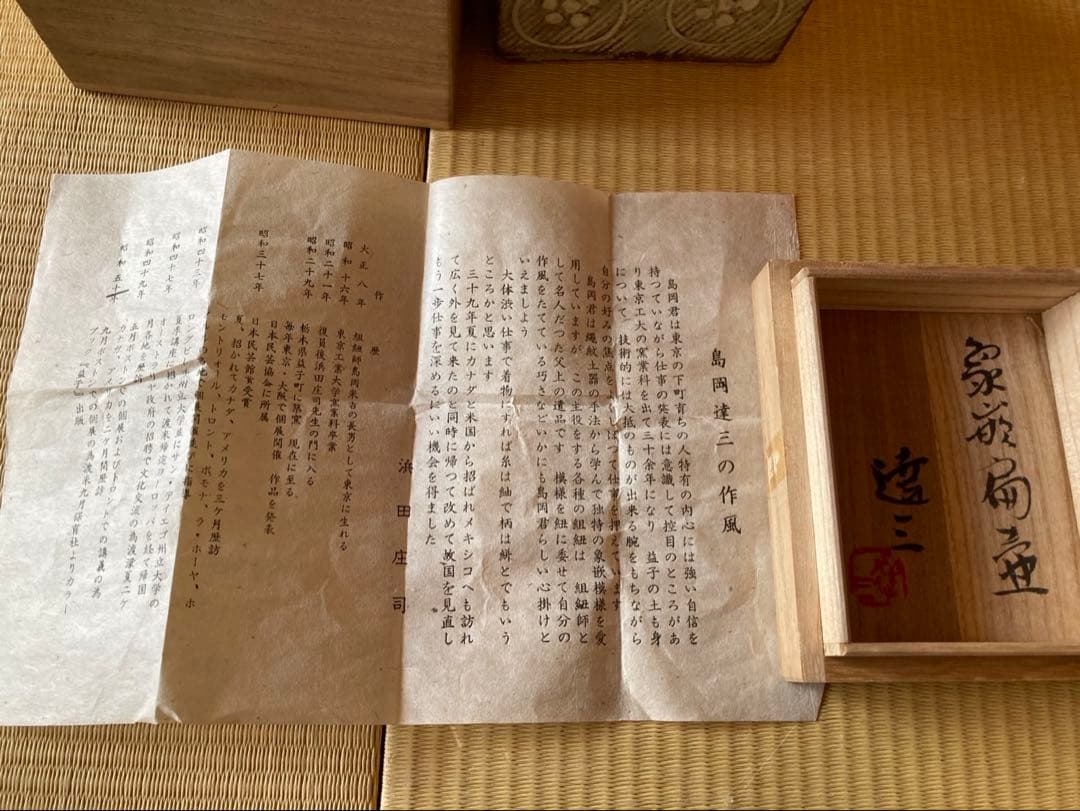 象嵌扁壺
達三
島岡達三の作風
島岡君は東京の下町育ちの人特有の内心には強い自信を
持つていながら仕事の発表には意識して控目のところがあ
り東京工大の窯業科を出て三十余年になり 益子の土も身
について、技術的には大抵のものが出来る腕をもちながら
自分の好みの焦点をしぼつて仕事を押えています
島岡君は縄紋土器の手法から学んで独特の象嵌模様を愛
用していますが この主役をする各種の組紐は 組紐師と
して名人だつた父上の遺品です 模様を紐に委せて自分の
作風をたてている巧さなどいかにも島岡君らしい心掛けと
いえましよう
大体渋い仕事で着物にすれば糸は紬で柄は絣とでもいう
ところかと思います
三十九年夏にカナダと米国から招ばれメキシコへも訪れ
て広く外を見て来たのと同時に帰つて改めて故国を見直し
もう一歩仕事を深めるにいい機会を得ました
浜田庄司
作歴
大正八年 組紐師島岡米吉の長男として東京に生れる
昭和十六年 東京工業大学窯業科卒業
昭和二十一年 復員後浜田庄司先生の門に入る
昭和二十九年 栃木県益子町に築窯 現在に至る
毎年東京・大阪で個展開催 作品を発表
日本民芸協会に所属
昭和三十七年 日本民芸館賞受賞
夏、招かれてカナダ、アメリカを三ケ月歴訪
モントリオール、トロント、ポモナ、ラ・ホーヤ、ホ
昭和四十三年 ロング
州立大学並にサン・ディエゴ州立大学の
昭和四十七年 夏季講座に招かれて渡米帰途ヨーロッパを経て帰国
昭和四十九年
月各地を歴訪
政府の招聘で文化交流の為渡津夏二ケ
昭和五十 五月ボストンでの個展およびトロントでの講義の為
カナダ、アメリカを二ケ月間歴訪
九月ボストンでの個展の為渡米九月保育社よりカラー
ブックス「益子」出版